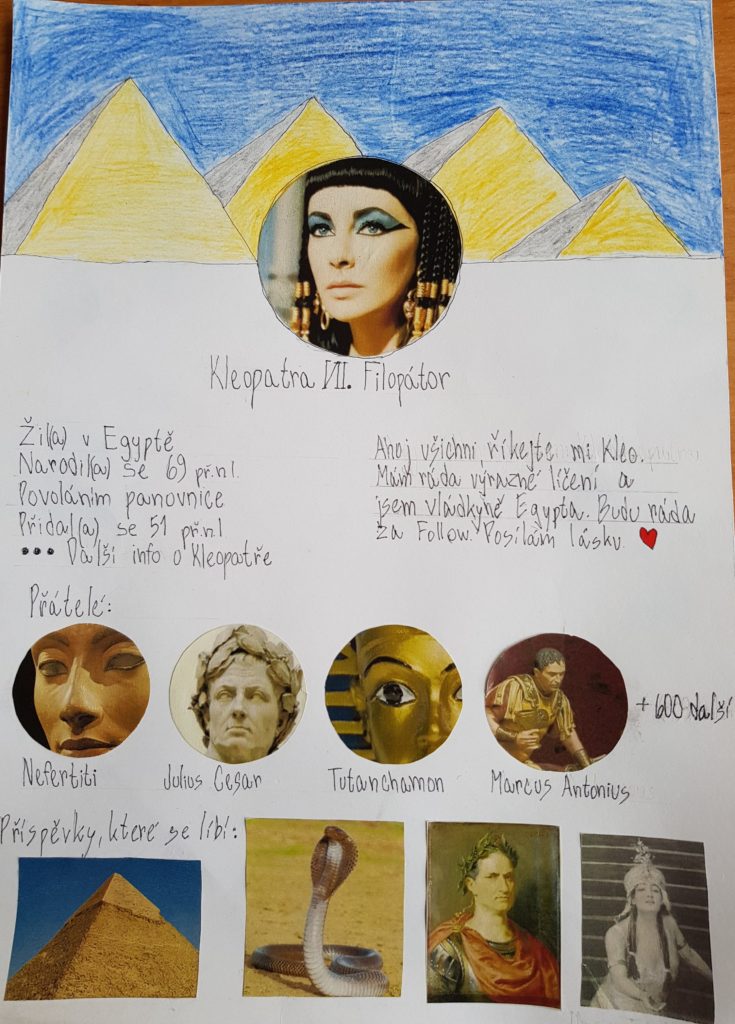 Kleopatra VII. Filopátor
Žil(a) v Egyptě
Narodil(a) se 69 př.n.l.
Povoláním panovnice
Přidal(a) se 51 př.n.l
••• Další info o Kleopatře
Ahoj všichni, říkejte mi Kleo.
Mám ráda výrazné líčení a
jsem vládkyně Egypta. Budu ráda
za Follow. Posílám lásku. ❤
Přátelé:
Nefertiti
Julius Cesar
Tutanchamon
Marcus Antonius
+ 600 další
Příspěvky, které se líbí: